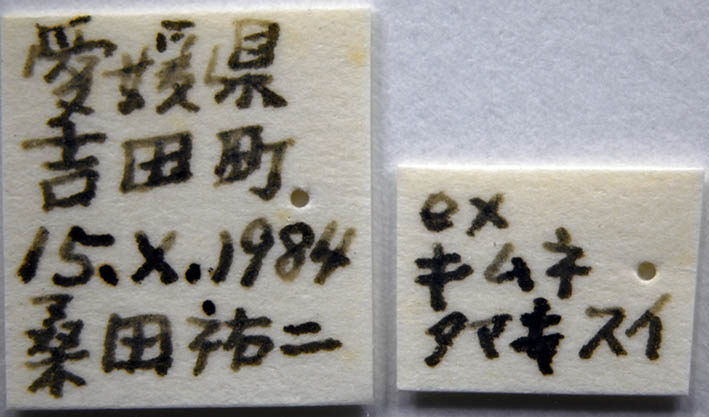 愛媛県
吉田町
15.X.1984
桑田祐二
ex
キムネ
タマキスイ